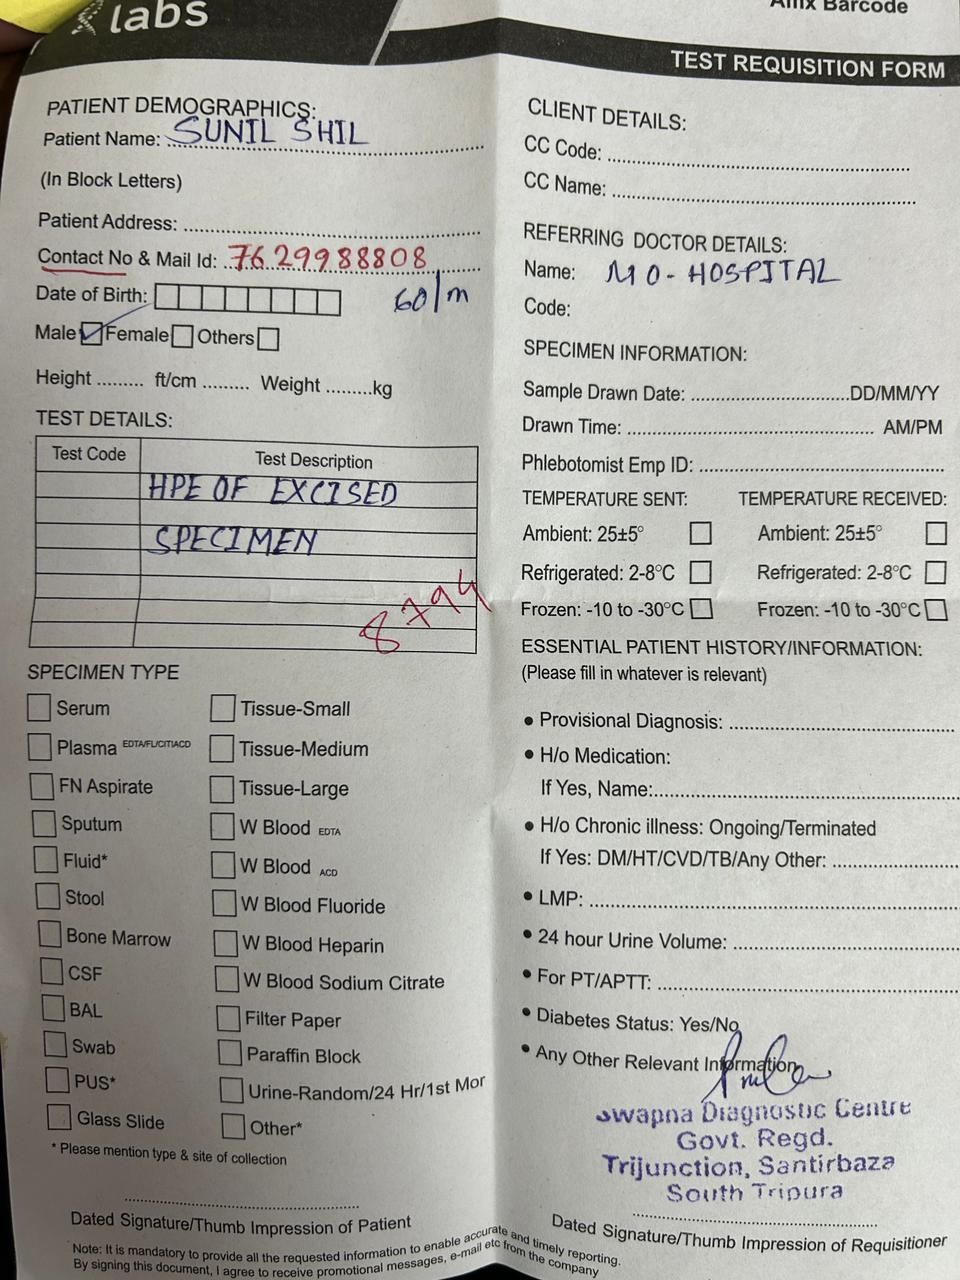 labs
Affix Barcode
TEST REQUISITION FORM
PATIENT DEMOGRAPHICS:
Patient Name: SUNIL SHIL
(In Block Letters)
Patient Address:
Contact No & Mail Id: 7629988808
Date of Birth: 60/m
Male Female Others
Height ......... ft/cm ......... Weight .........kg
TEST DETAILS:
Test Code Test Description
HPE OF EXCISED
SPECIMEN
8794
SPECIMEN TYPE
Serum Tissue-Small
Plasma EDTA/FL/CIT/ACD Tissue-Medium
FN Aspirate Tissue-Large
Sputum W Blood EDTA
Fluid* W Blood ACD
Stool W Blood Fluoride
Bone Marrow W Blood Heparin
CSF W Blood Sodium Citrate
BAL Filter Paper
Swab Paraffin Block
PUS* Urine-Random/24 Hr/1st Mor
Glass Slide Other*
* Please mention type & site of collection
Dated Signature/Thumb Impression of Patient
CLIENT DETAILS:
CC Code:
CC Name:
REFERRING DOCTOR DETAILS:
Name: MO-HOSPITAL
Code:
SPECIMEN INFORMATION:
Sample Drawn Date: DD/MM/YY
Drawn Time: AM/PM
Phlebotomist Emp ID:
TEMPERATURE SENT: TEMPERATURE RECEIVED:
Ambient: 25±5° Ambient: 25±5°
Refrigerated: 2-8°C Refrigerated: 2-8°C
Frozen: -10 to -30°C Frozen: -10 to -30°C
ESSENTIAL PATIENT HISTORY/INFORMATION:
(Please fill in whatever is relevant)
• Provisional Diagnosis:
• H/o Medication:
If Yes, Name:
• H/o Chronic illness: Ongoing/Terminated
If Yes: DM/HT/CVD/TB/Any Other:
• LMP:
• 24 hour Urine Volume:
• For PT/APTT:
• Diabetes Status: Yes/No
• Any Other Relevant Information
Swapna Diagnostic Centre
Govt. Regd.
Trijunction, Santirbaza
South Tripura
Dated Signature/Thumb Impression of Requisitioner
Note: It is mandatory to provide all the requested information to enable accurate and timely reporting.
By signing this document, I agree to receive promotional messages, e-mail etc from the company